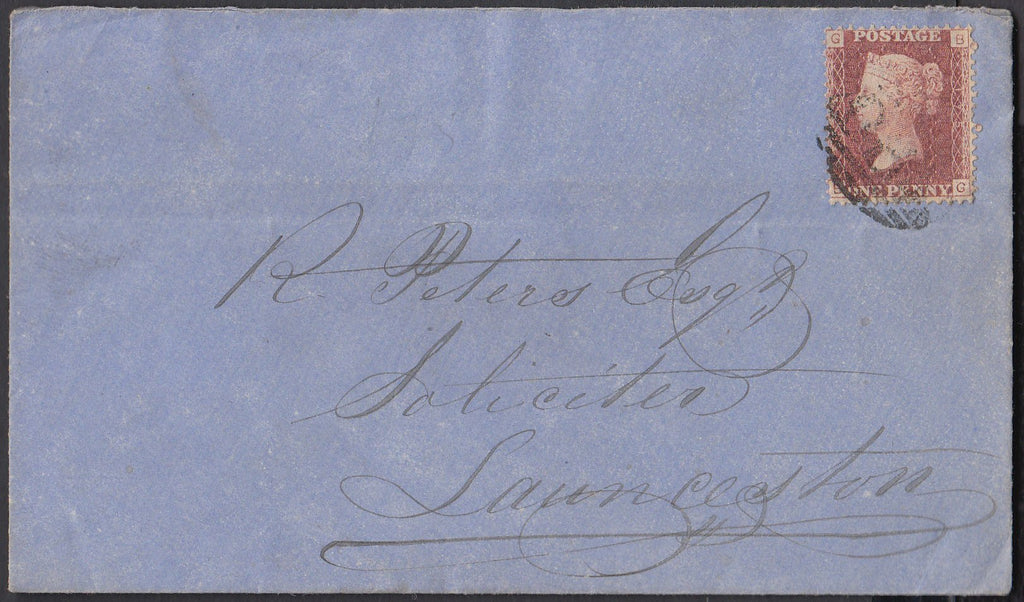 G POSTAGE B
ONE PENNY G
R. Peters Esqr
Solicitor
Launceston